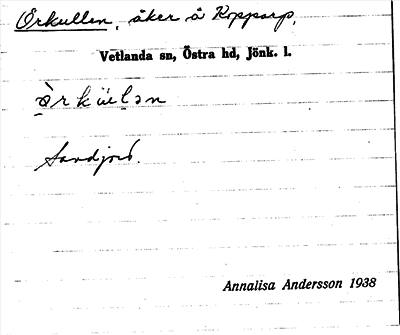 Örkullen, åker å Kopparp,
Vetlanda sn, Östra hd, Jönk. l.
Sandjord.
Annalisa Andersson 1938